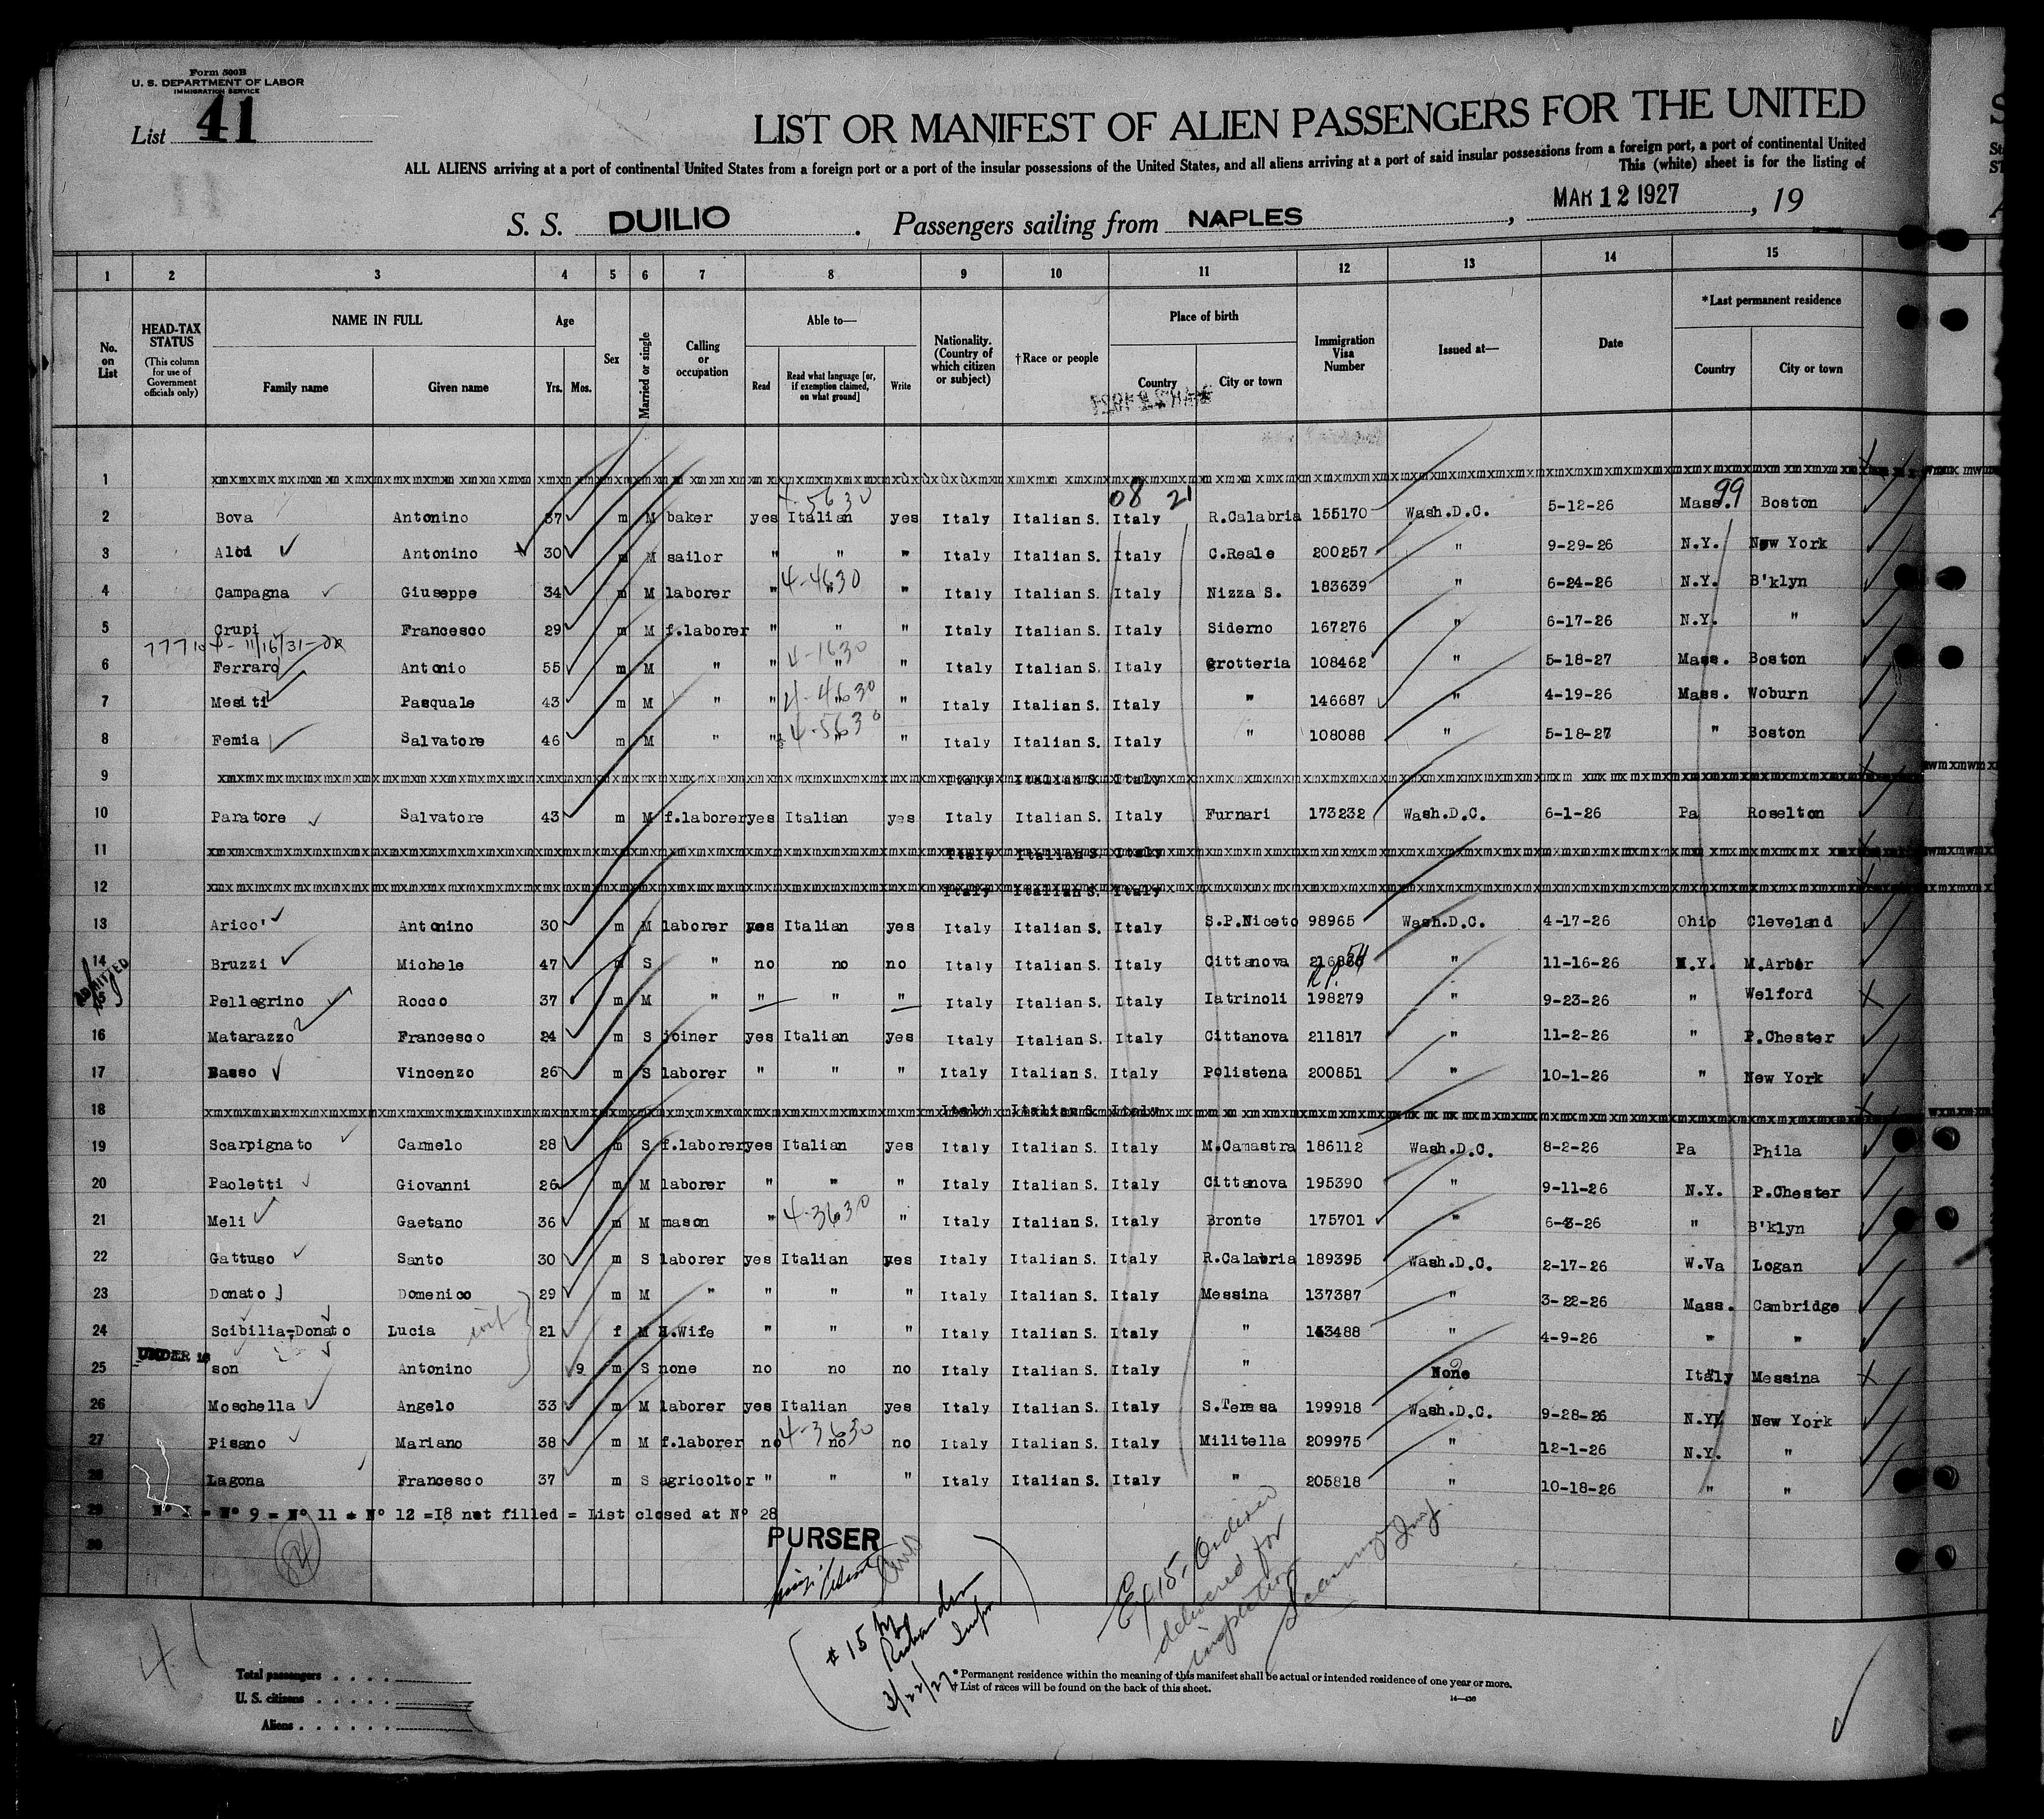 Form 500B
U. S. DEPARTMENT OF LABOR
IMMIGRATION SERVICE
List 41
LIST OR MANIFEST OF ALIEN PASSENGERS FOR THE UNITED
ALL ALIENS arriving at a port of continental United States from a foreign port or a port of the insular possessions of the United States, and all aliens arriving at a port of said insular possessions from a foreign port, a port of continental United
This (white) sheet is for the listing of
S. S. DUILIO . Passengers sailing from NAPLES , MAR 12 1927 , 19
1 2 3 4 5 6 7 8 9 10 11 12 13 14 15
No. on List
HEAD-TAX STATUS (This column for use of Government officials only)
NAME IN FULL Family name Given name
Age Yrs. Mos.
Sex
Married or single
Calling or occupation
Able to— Read Read what language [or, if exemption claimed, on what ground] Write
Nationality. (Country of which citizen or subject)
†Race or people
Place of birth Country City or town
Immigration Visa Number
Issued at—
Date
*Last permanent residence Country City or town
1
4-5630 08 21 99
2 Bova Antonino 37 m M baker yes Italian yes Italy Italian S. Italy R.Calabria 155170 Wash.D.C. 5-12-26 Mass. Boston
3 Aloi Antonino 30 m M sailor " " " Italy Italian S. Italy C.Reale 200257 " 9-29-26 N.Y. New York
4 Campagna Giuseppe 34 m M laborer " 4-4630 " " Italy Italian S. Italy Nizza S. 183639 " 6-24-26 N.Y. B'klyn
5 Crupi Francesco 29 m M f.laborer " " " Italy Italian S. Italy Siderno 167276 " 6-17-26 N.Y. "
6 Ferraro Antonio 55 m M " " 4-1630 " " Italy Italian S. Italy Grotteria 108462 " 5-18-27 Mass. Boston
7 Mesiti Pasquale 43 m M " " 4-4630 " " Italy Italian S. Italy " 146687 " 4-19-26 Mass. Woburn
8 Femia Salvatore 46 m M " " 4-5630 " " Italy Italian S. Italy " 108088 " 5-18-27 " Boston
9 Italy Italian S. Italy
10 Paratore Salvatore 43 m M f.laborer yes Italian yes Italy Italian S. Italy Furnari 173232 Wash.D.C. 6-1-26 Pa Roselton
11 Italy Italian S. Italy
12 Italy Italian S. Italy
13 Arico' Antonino 30 m M laborer yes Italian yes Italy Italian S. Italy S.P.Niceto 98965 Wash.D.C. 4-17-26 Ohio Cleveland
14 Bruzzi Michele 47 m S " no no no Italy Italian S. Italy Cittanova " 11-16-26 N.Y. M.Arbor
ADMITTED
15 Pellegrino Rocco 37 m M " " " " Italy Italian S. Italy Iatrinoli 198279 " 9-23-26 " Welford
16 Matarazzo Francesco 24 m S joiner yes Italian yes Italy Italian S. Italy Cittanova 211817 " 11-2-26 " P.Chester
17 Basso Vincenzo 26 m S laborer " " " Italy Italian S. Italy Polistena 200851 " 10-1-26 " New York
18 Italy Italian S. Italy
19 Scarpignato Carmelo 28 m S f.laborer yes Italian yes Italy Italian S. Italy M.Camastra 186112 Wash.D.C. 8-2-26 Pa Phila
20 Paoletti Giovanni 26 m M laborer " " " Italy Italian S. Italy Cittanova 195390 " 9-11-26 N.Y. P.Chester
21 Meli Gaetano 36 m M mason " 4-3630 " Italy Italian S. Italy Bronte 175701 " 6-3-26 " B'klyn
22 Gattuso Santo 30 m S laborer yes Italian yes Italy Italian S. Italy R.Calabria 189395 Wash.D.C. 2-17-26 W.Va Logan
23 Donato Domenico 29 m M " " " " Italy Italian S. Italy Messina 137387 " 3-22-26 Mass. Cambridge
24 Scibilia-Donato Lucia 21 f M H.Wife " " " Italy Italian S. Italy " 143488 " 4-9-26 " "
UNDER 16
25 son Antonino 9 m S none no no no Italy Italian S. Italy " None Italy Messina
26 Moschella Angelo 33 m M laborer yes Italian yes Italy Italian S. Italy S.Teresa 199918 Wash.D.C. 9-28-26 N.Y. New York
27 Pisano Mariano 38 m M f.laborer no 4-3630 no no Italy Italian S. Italy Militella 209975 " 12-1-26 N.Y. "
28 Lagona Francesco 37 m S agricoltor " " " Italy Italian S. Italy " 205818 " 10-18-26 " "
29 N° 1 = N° 9 = N° 11 = N° 12 =18 not filled = List closed at N° 28
30
PURSER
#15
3/22/27
Ex 15- Ordered
delivered for
inspection
41
Total passengers
U. S. citizens
Aliens
*Permanent residence within the meaning of this manifest shall be actual or intended residence of one year or more.
†List of races will be found on the back of this sheet.